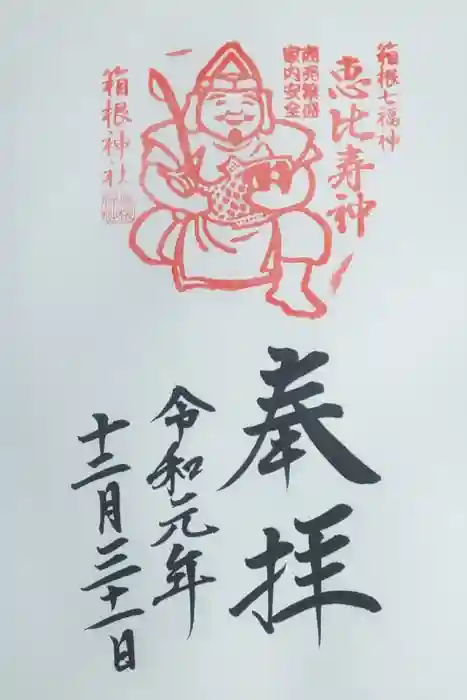 箱根七福神
恵比寿神
商売繁盛
家内安全
箱根神社
奉拝
令和元年
十二月三十一日